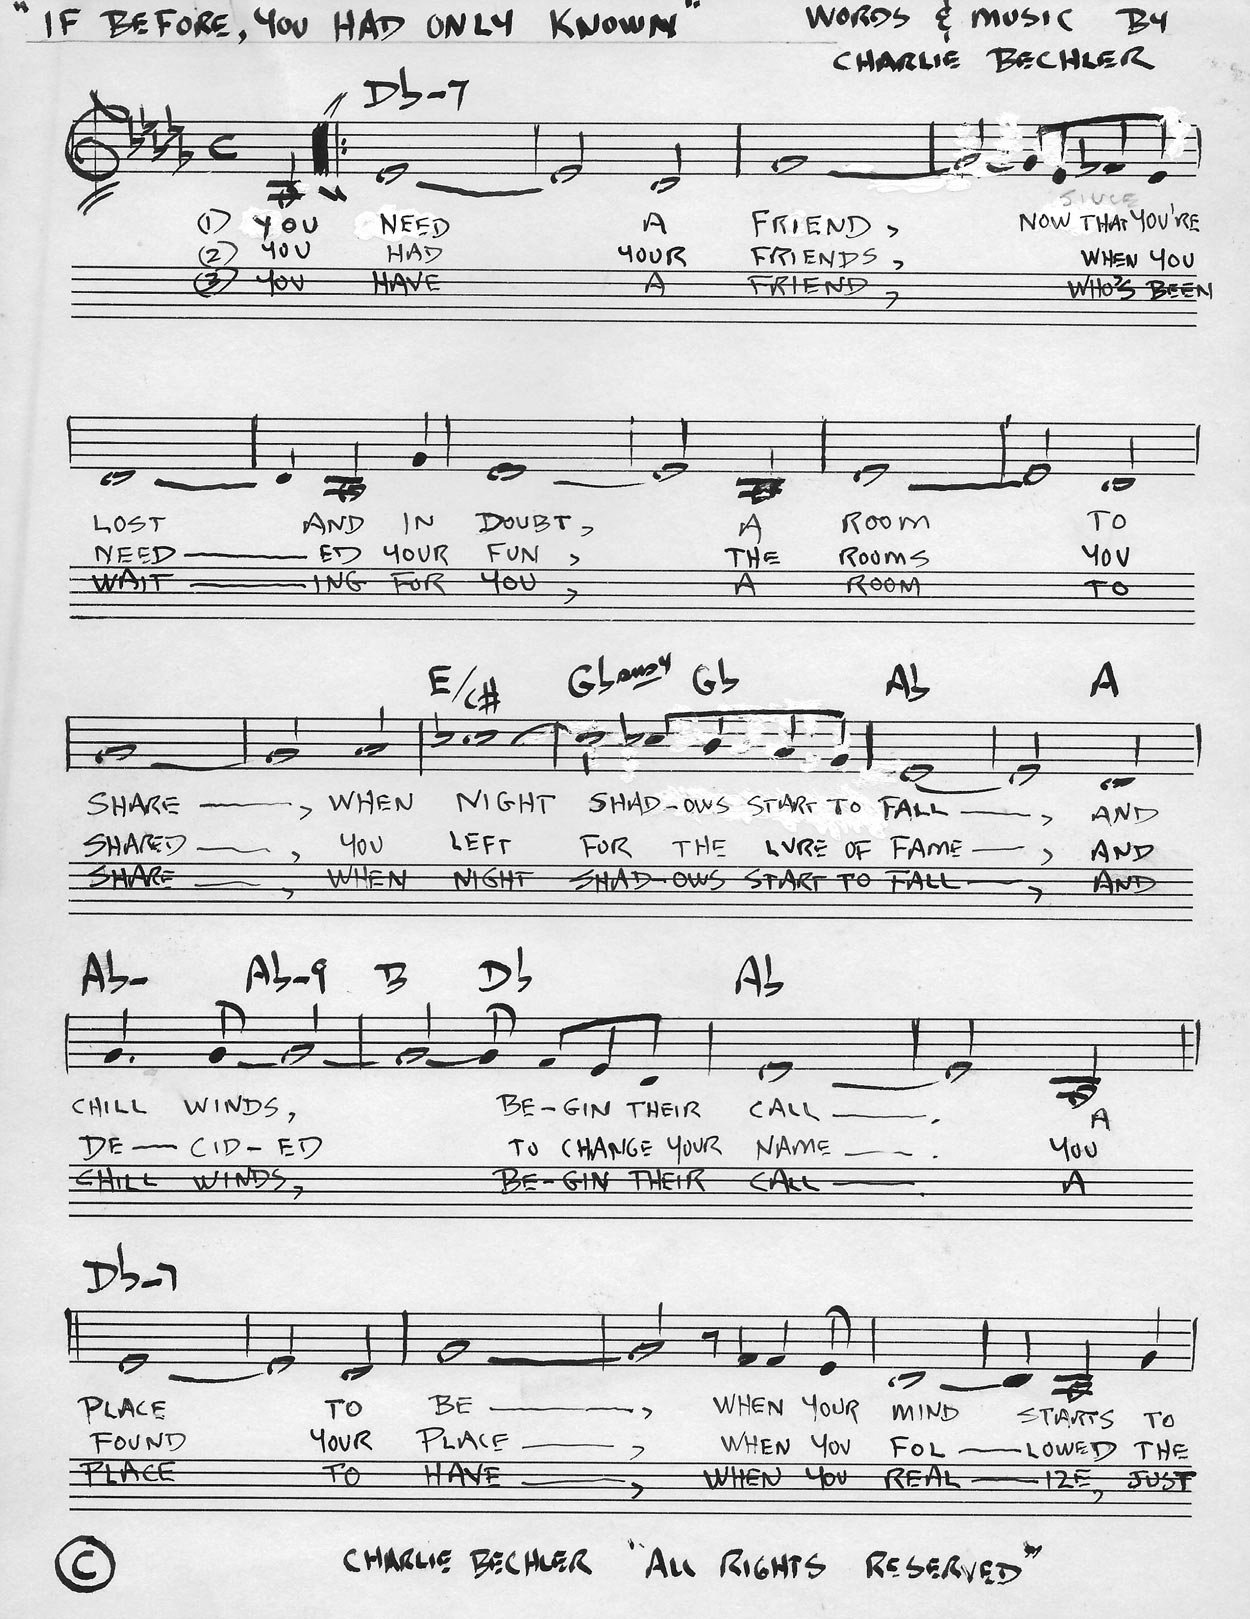 "IF BEFORE, YOU HAD ONLY KNOWN" WORDS & MUSIC BY
CHARLIE BECHLER
D♭-7
C
SINCE
(1) YOU NEED A FRIEND, NOW THAT YOU'RE
(2) YOU HAD YOUR FRIENDS, WHEN YOU
(3) YOU HAVE A FRIEND, WHO'S BEEN
LOST AND IN DOUBT, A ROOM TO
NEED — ED YOUR FUN, THE ROOMS YOU
WAIT — ING FOR YOU, A ROOM TO
E/C# G♭sus4 G♭ A♭ A
SHARE —, WHEN NIGHT SHAD-OWS START TO FALL —, AND
SHARED —, YOU LEFT FOR THE LURE OF FAME —, AND
SHARE —, WHEN NIGHT SHAD-OWS START TO FALL —, AND
A♭- A♭-9 B D♭ A♭
CHILL WINDS, BE-GIN THEIR CALL —. A
DE — CID-ED TO CHANGE YOUR NAME —. YOU
CHILL WINDS, BE-GIN THEIR CALL —. A
D♭-7
PLACE TO BE —, WHEN YOUR MIND STARTS TO
FOUND YOUR PLACE —, WHEN YOU FOL — LOWED THE
PLACE TO HAVE —, WHEN YOU REAL — IZE, JUST
© CHARLIE BECHLER "ALL RIGHTS RESERVED"